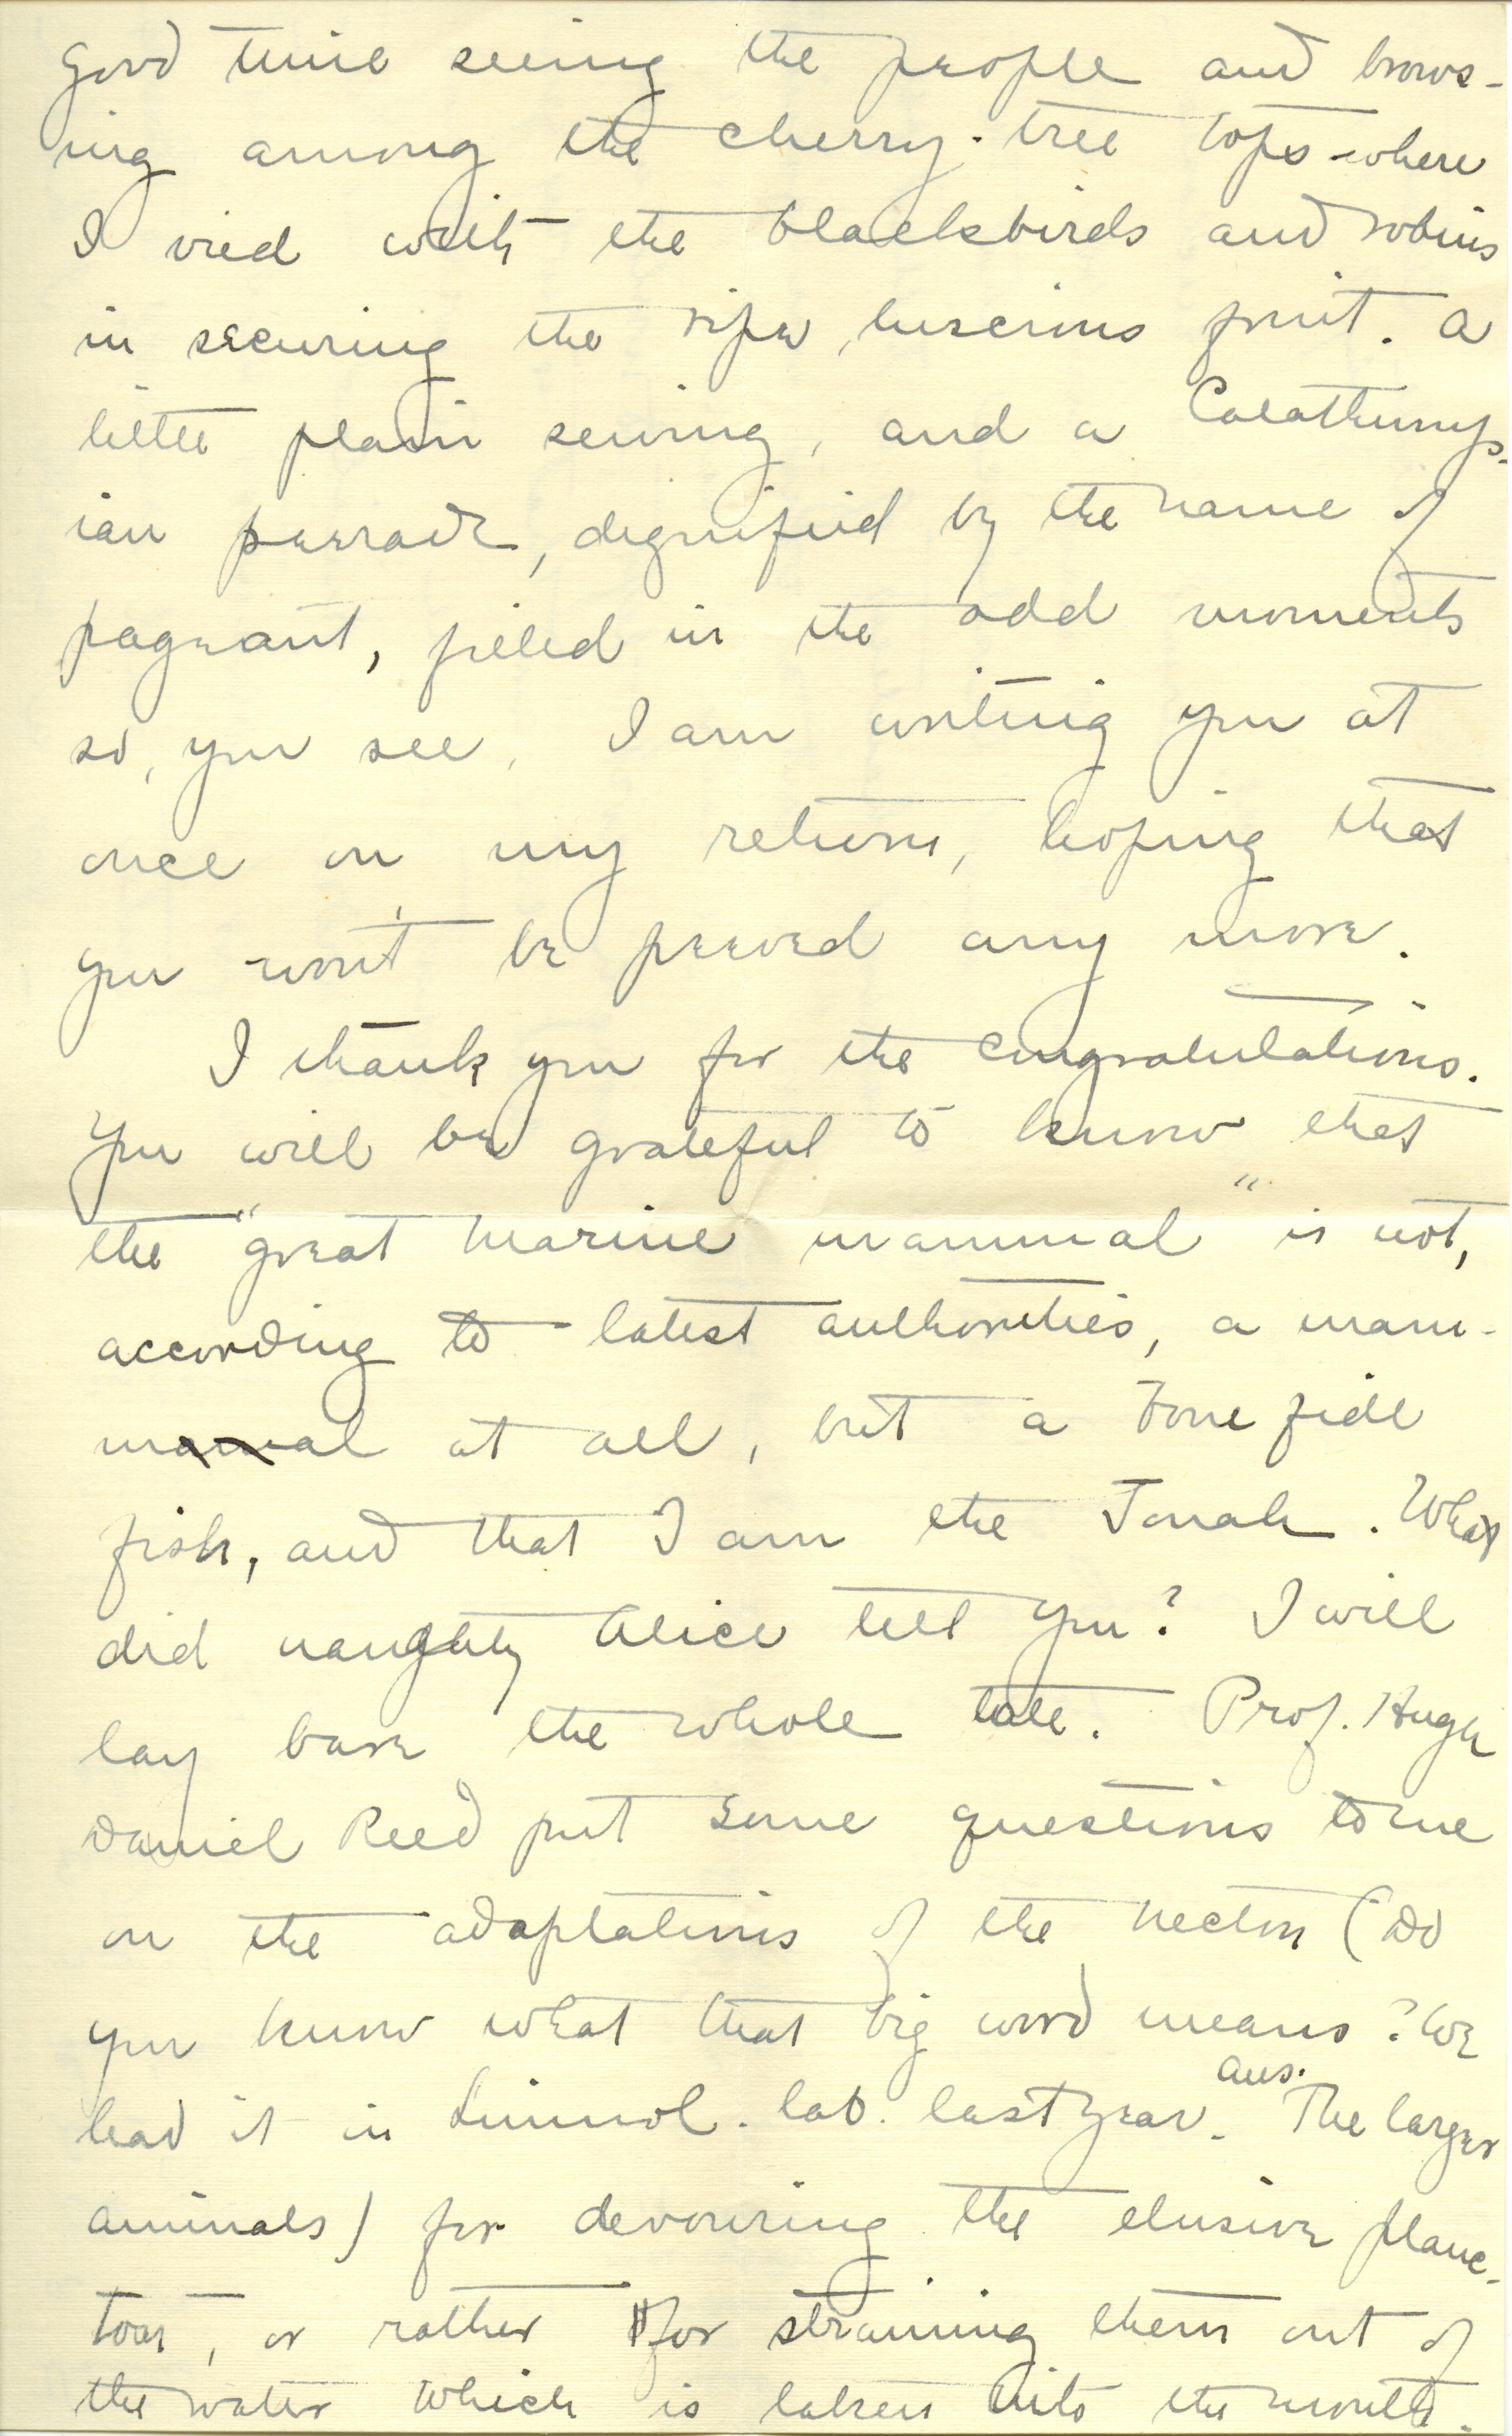 good time seeing the people and brows-
ing among the cherry-tree tops where
I vied with the blackbirds and robins
in securing the ripe, luscious fruit. A
little plain sewing, and a Calathump-
ian parade, dignified by the name of
pageant, filled in the odd moments
so, you see, I am writing you at
once on my return, hoping that
you won't be peeved any more.
I thank you for the congratulations.
You will be grateful to know that
the "great marine mammal" is not,
according to latest authorities, a mam-
mal at all, but a bone fide
fish, and that I am the Jonah. What
did naughty Alice tell you? I will
lay bare the whole tale. Prof. Hugh
Daniel Reed put some questions to me
on the adaptations of the necton (Do
you know what that big word means? We
had it in Limnol. lab. last year. ans. The larger
animals) for devouring the elusive planc-
ton, or rather for straining them out of
the water which is taken into the mouth.